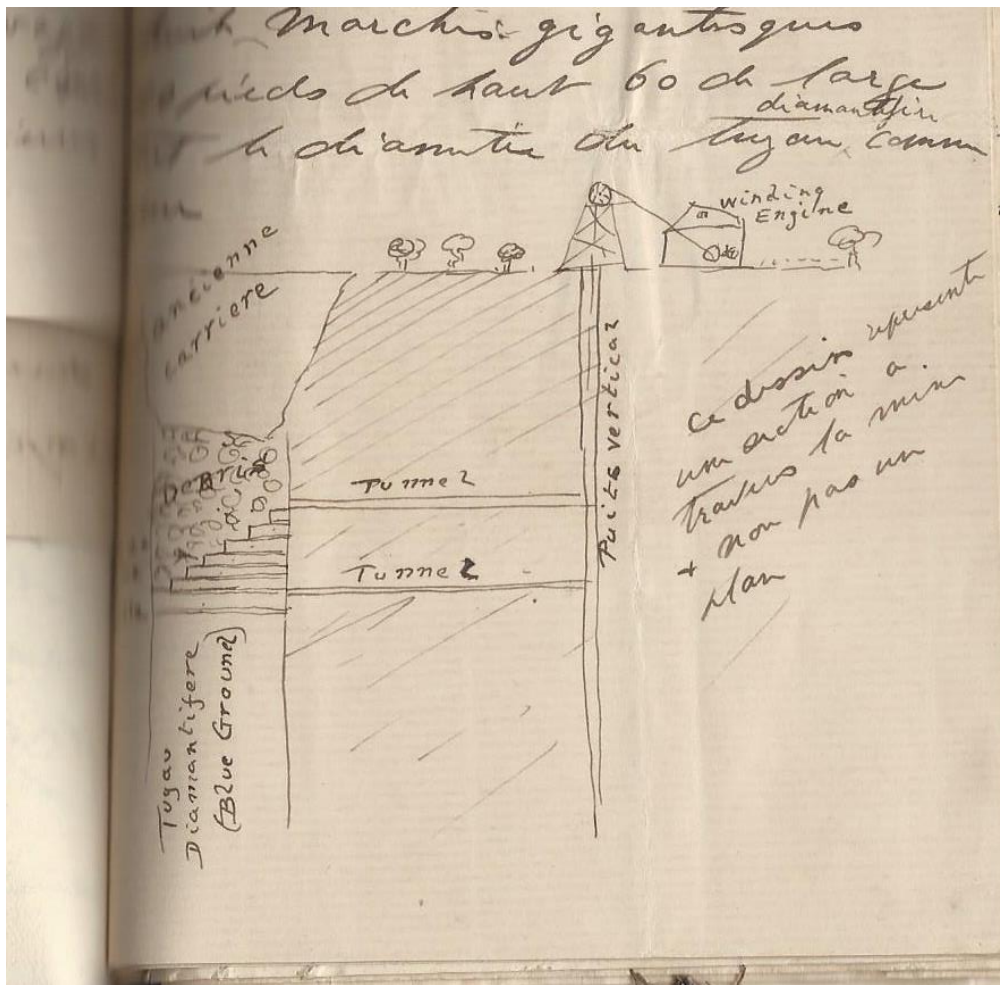 Marches gigantesques
pieds de haut 60 de large
diamantifère
et le diamètre du tuyau comm
winding
Engine
ancienne
carriere
Debris
Tunnel
Tunnel
Puits vertical
Tuyau
Diamantifere
(Blue Ground)
ce dessin represente
une section a
travers la mine
+ non pas un
plan